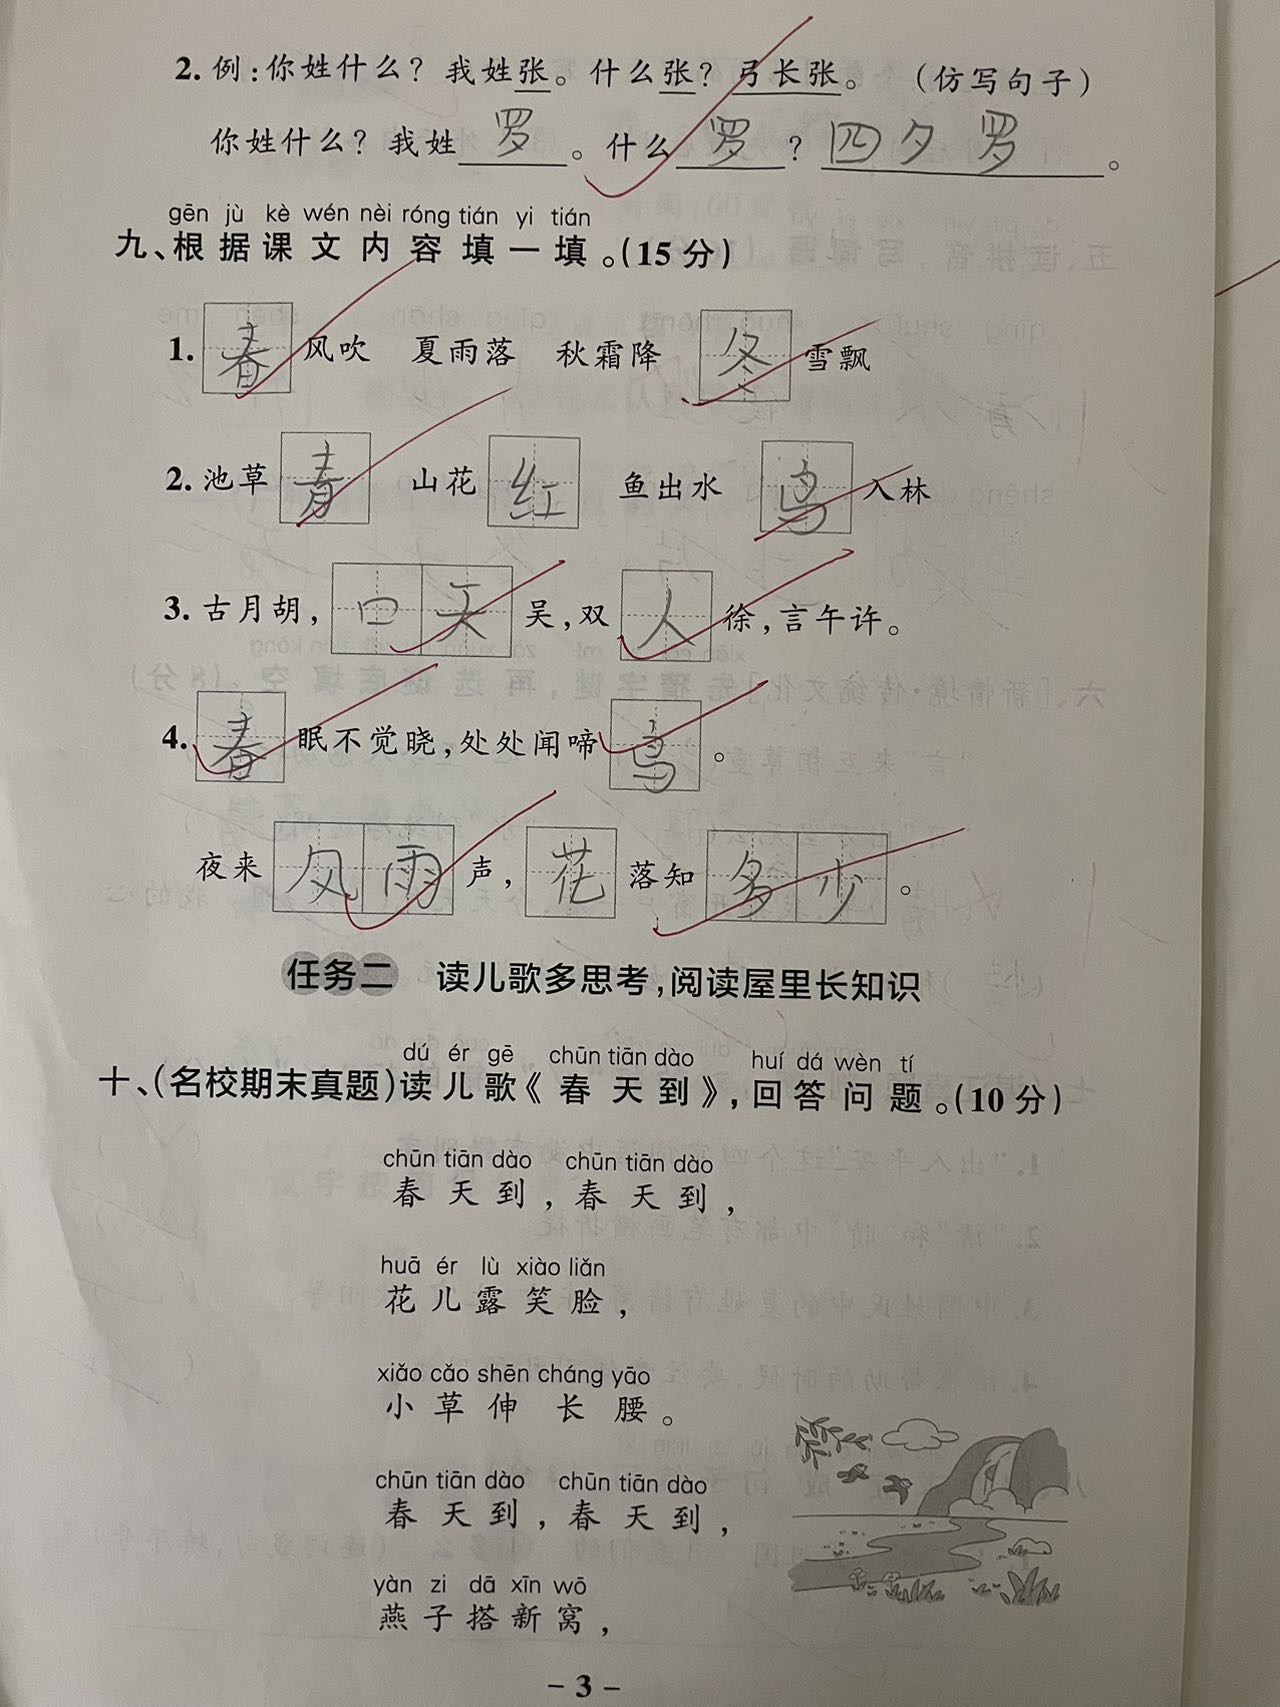 2. 例：你姓什么？我姓张。什么张？弓长张。（仿写句子）
你姓什么？我姓罗。什么罗？四夕罗。
gēn jù kè wén nèi róng tián yi tián
九、根据课文内容填一填。(15分)
1. 春风吹 夏雨落 秋霜降 冬雪飘
2. 池草青 山花红 鱼出水 鸟入林
3. 古月胡，口天吴，双人徐，言午许。
4. 春眠不觉晓，处处闻啼鸟。
夜来风雨声，花落知多少。
任务二 读儿歌多思考，阅读屋里长知识
dú ér gē chūn tiān dào huí dá wèn tí
十、(名校期末真题)读儿歌《春天到》，回答问题。(10分)
chūn tiān dào chūn tiān dào
春天到，春天到，
huā ér lù xiào liǎn
花儿露笑脸，
xiǎo cǎo shēn cháng yāo
小草伸长腰。
chūn tiān dào chūn tiān dào
春天到，春天到，
yàn zi dā xīn wō
燕子搭新窝，
- 3 -